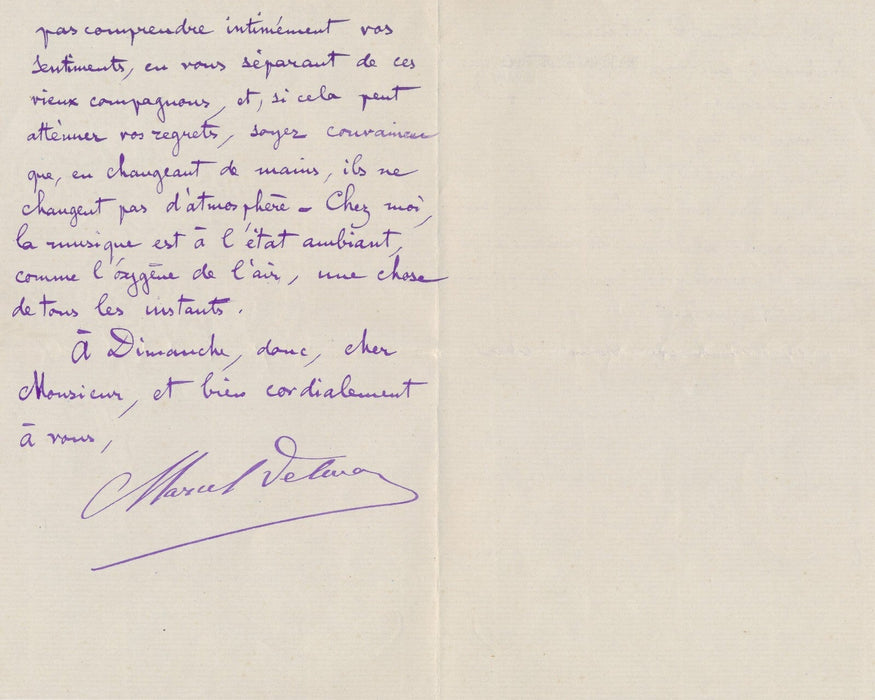 pas comprendre intimément vos
sentiments, en vous séparant de ces
vieux compagnons, et, si cela peut
atténuer vos regrets, soyez convaincu
que, en changeant de mains, ils ne
changent pas d'atmosphère - Chez moi,
la musique est à l'état ambiant,
comme l'oxygène de l'air, une chose
de tous les instants.
À Dimanche, donc, cher
Monsieur, et bien cordialement
à vous,
Marcel